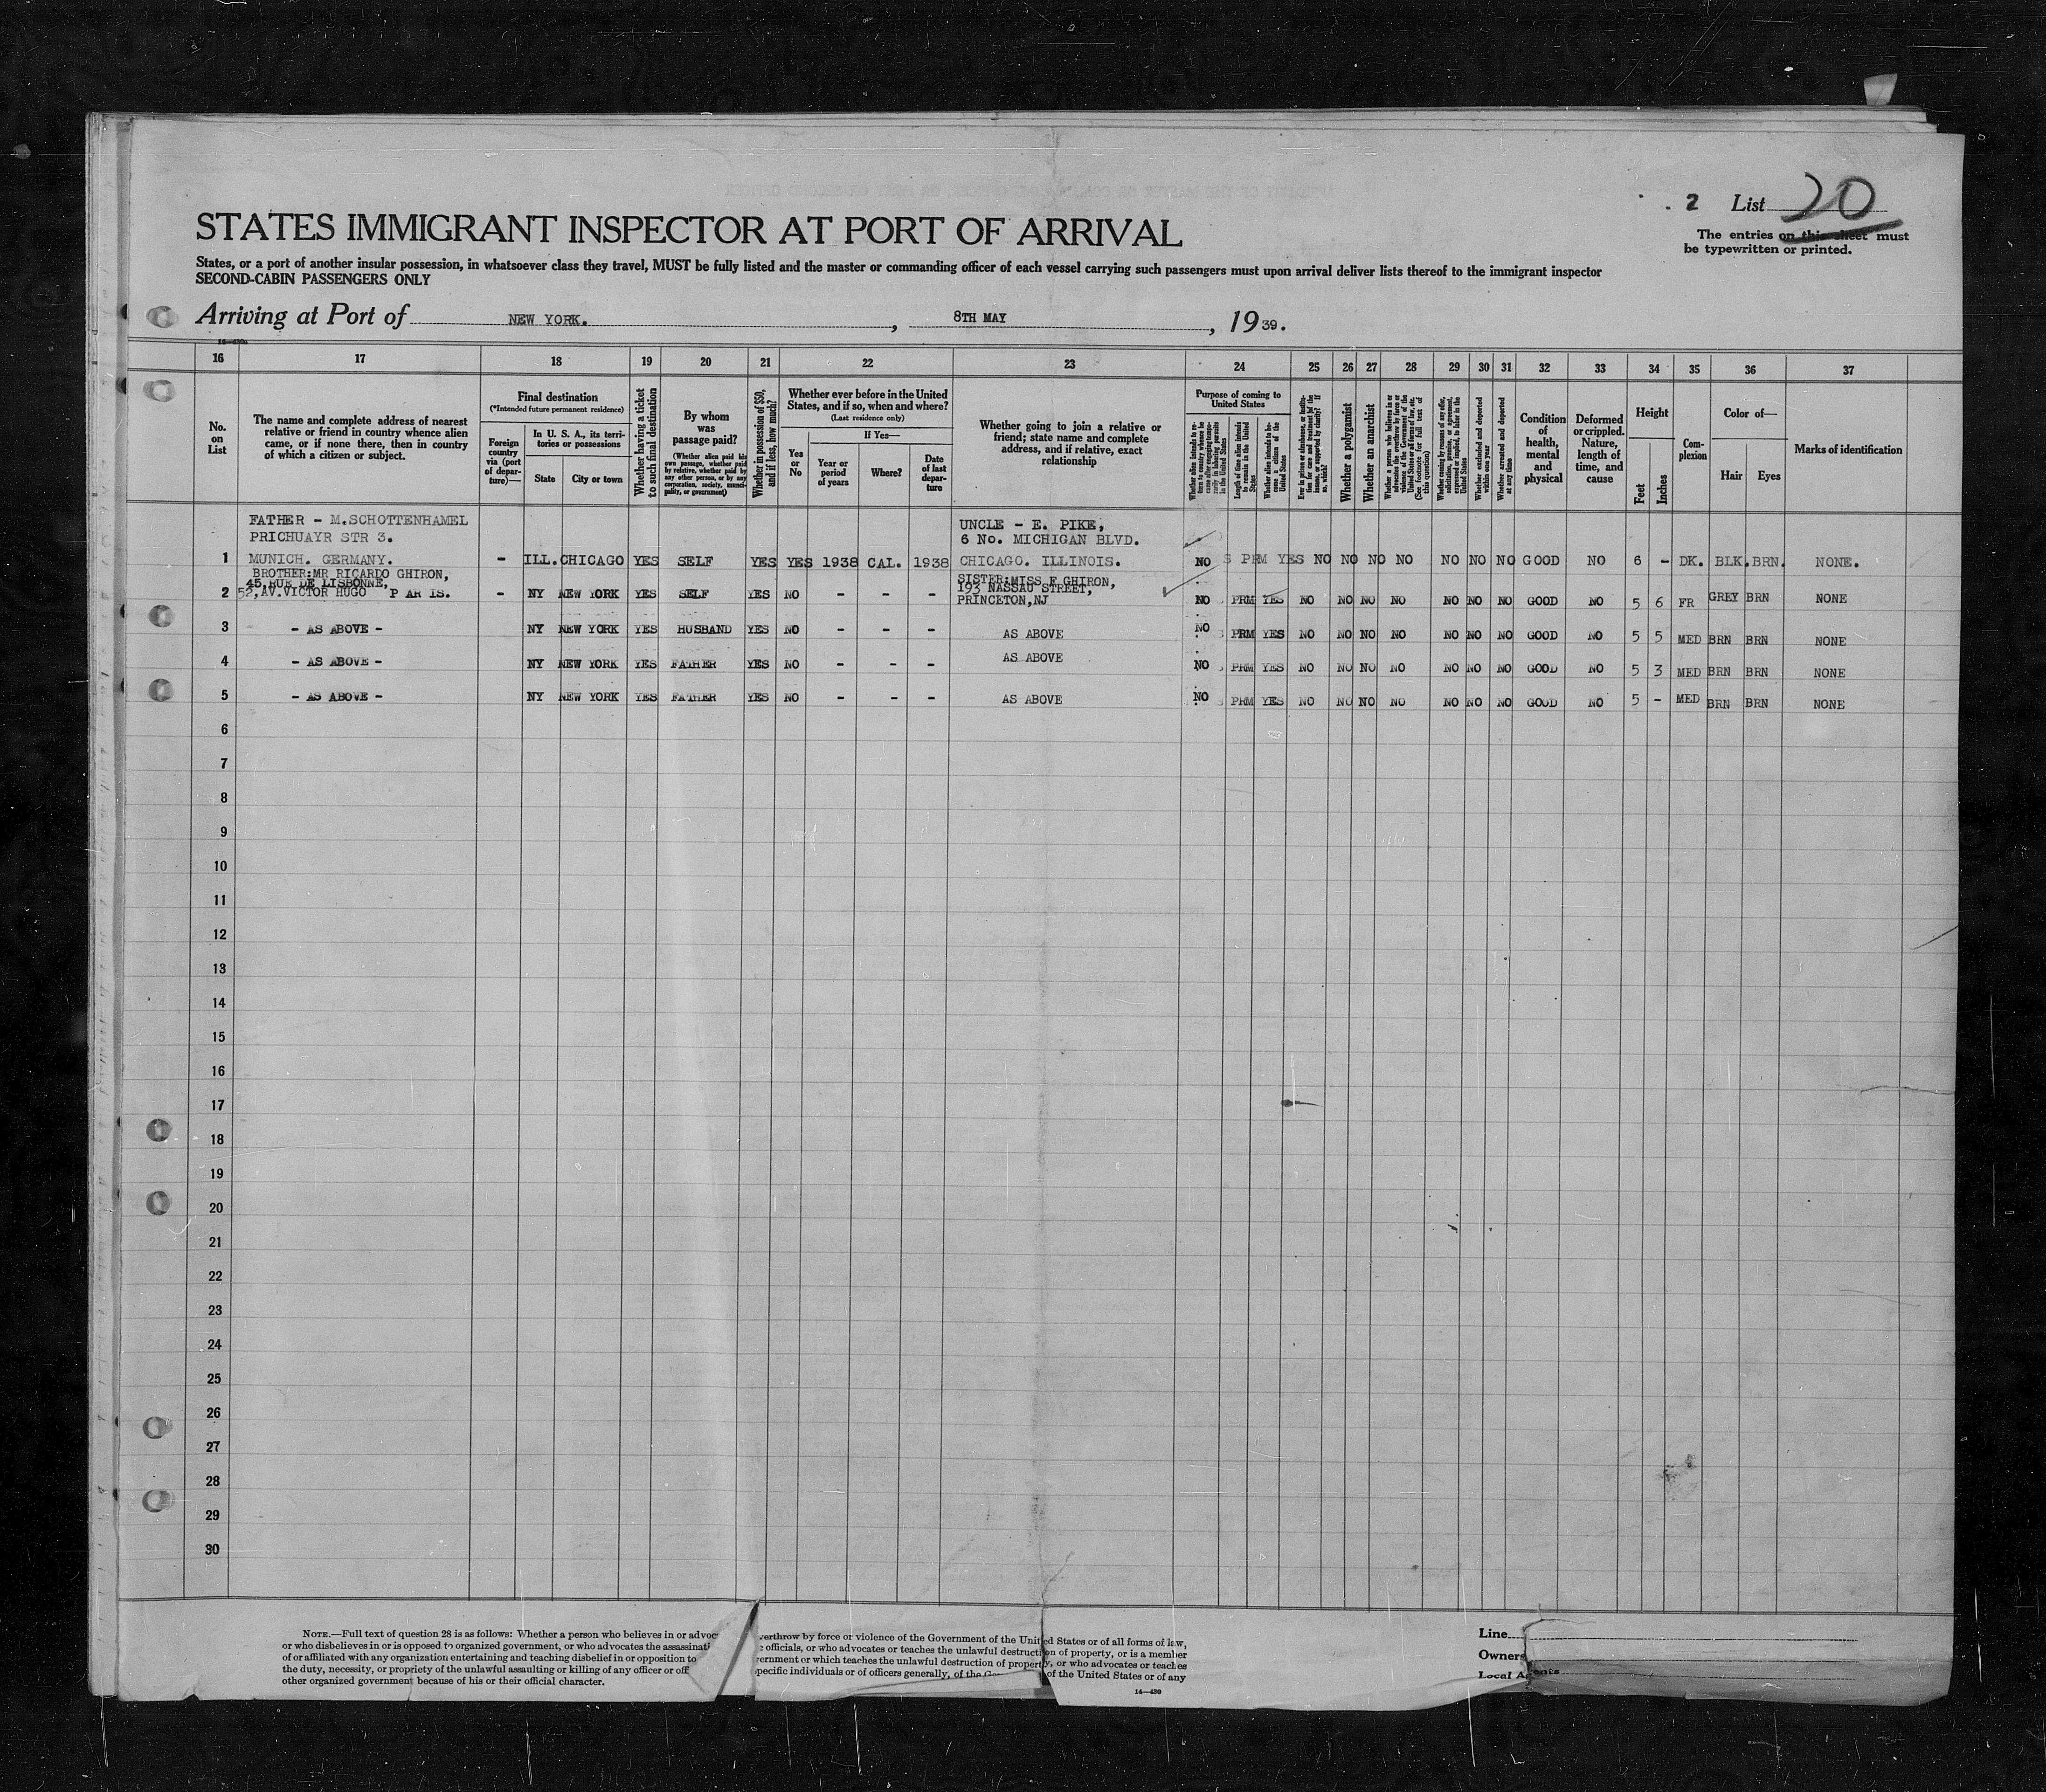 2 List 20
The entries on this sheet must
be typewritten or printed.
STATES IMMIGRANT INSPECTOR AT PORT OF ARRIVAL
States, or a port of another insular possession, in whatsoever class they travel, MUST be fully listed and the master or commanding officer of each vessel carrying such passengers must upon arrival deliver lists thereof to the immigrant inspector
SECOND-CABIN PASSENGERS ONLY
Arriving at Port of NEW YORK. , 8TH MAY , 1939.
16 17 18 19 20 21 22 23 24 25 26 27 28 29 30 31 32 33 34 35 36 37
No.
on
List
The name and complete address of nearest
relative or friend in country whence alien
came, or if none there, then in country
of which a citizen or subject.
Final destination
(*Intended future permanent residence)
Foreign
country
via (port
of depar-
ture)—
In U. S. A., its terri-
tories or possessions
State
City or town
Whether having a ticket
to such final destination
By whom
was
passage paid?
(Whether alien paid his
own passage, whether paid
by relative, whether paid by
any other person, or by any
corporation, society, munici-
pality, or government)
Whether in possession of $50,
and if less, how much?
Whether ever before in the United
States, and if so, when and where?
(Last residence only)
Yes
or
No
If Yes—
Year or
period
of years
Where?
Date
of last
depar-
ture
Whether going to join a relative or
friend; state name and complete
address, and if relative, exact
relationship
Purpose of coming to
United States
Length of time alien intends
to remain in the United
States
Whether alien intends to be-
come a citizen of the
United States
Whether a polygamist
Whether an anarchist
Whether excluded and deported
within one year
Whether arrested and deported
at any time
Condition
of
health,
mental
and
physical
Deformed
or crippled.
Nature,
length of
time, and
cause
Height
Feet
Inches
Com-
plexion
Color of—
Hair
Eyes
Marks of identification
FATHER - M.SCHOTTENHAMEL UNCLE - E. PIKE,
PRICHUAYR STR 3. 6 No. MICHIGAN BLVD.
1 MUNICH. GERMANY. - ILL. CHICAGO YES SELF YES YES 1938 CAL. 1938 CHICAGO. ILLINOIS. NO PRM YES NO NO NO NO NO NO NO GOOD NO 6 - DK. BLK. BRN. NONE.
BROTHER:MR RICARDO GHIRON, SISTER:MISS F GHIRON,
45, RUE DE LISBONNE, 193 NASSAU STREET,
2 52, AV.VICTOR HUGO P AR IS. - NY NEW YORK YES SELF YES NO - - - PRINCETON,NJ NO PRM YES NO NO NO NO NO NO NO GOOD NO 5 6 FR GREY BRN NONE
3 - AS ABOVE - NY NEW YORK YES HUSBAND YES NO - - - AS ABOVE NO PRM YES NO NO NO NO NO NO NO GOOD NO 5 5 MED BRN BRN NONE
4 - AS ABOVE - NY NEW YORK YES FATHER YES NO - - - AS ABOVE NO PRM YES NO NO NO NO NO NO NO GOOD NO 5 3 MED BRN BRN NONE
5 - AS ABOVE - NY NEW YORK YES FATHER YES NO - - - AS ABOVE NO PRM YES NO NO NO NO NO NO NO GOOD NO 5 - MED BRN BRN NONE
6
7
8
9
10
11
12
13
14
15
16
17
18
19
20
21
22
23
24
25
26
27
28
29
30
NOTE.—Full text of question 28 is as follows: Whether a person who believes in or advoc verthrow by force or violence of the Government of the United States or of all forms of law,
or who disbelieves in or is opposed to organized government, or who advocates the assassinati c officials, or who advocates or teaches the unlawful destruction of property, or is a member
of or affiliated with any organization entertaining and teaching disbelief in or opposition to rnment or which teaches the unlawful destruction of property, or who advocates or teaches
the duty, necessity, or propriety of the unlawful assaulting or killing of any officer or off pecific individuals or of officers generally, of the of the United States or of any
other organized government because of his or their official character.
14—430
Line
Owners
Local Agents